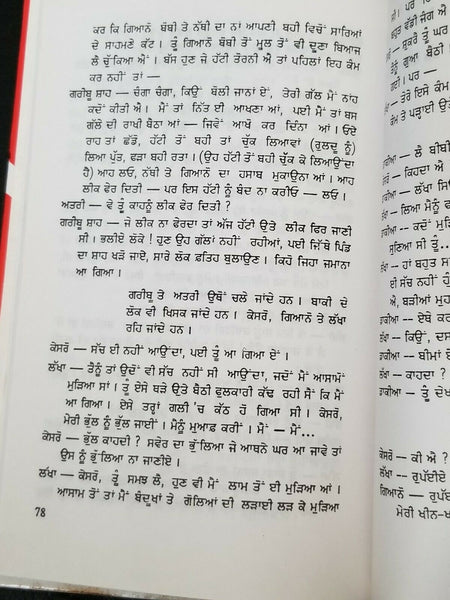 ਕਰ ਕਿ ਗਿਆਨੋ ਬੰਬੀ ਤੇ ਨੱਬੀ ਦਾ ਨਾਂ ਆਪਣੀ ਬਹੀ ਵਿਚੋਂ ਸਾਰਿਆਂ
ਦੇ ਸਾਹਮਣੇ ਕੱਟ । ਤੂੰ ਗਿਆਨੋ ਬੰਬੀ ਤੋਂ ਮੂਲ ਤੋਂ ਵੀ ਦੂਣਾ ਬਿਆਜ
ਲੈ ਚੁੱਕਿਆ ਐਂ । ਬੱਸ ਹੁਣ ਜੇ ਹੱਟੀ ਤੋਰਨੀ ਐ ਤਾਂ ਪਹਿਲਾਂ ਇਹ ਕੰਮ
ਕਰ ਨਹੀਂ ਤਾਂ —
ਗਰੀਬੂ ਸ਼ਾਹ — ਚੰਗਾ ਚੰਗਾ, ਕਿਉਂ ਬੋਲੀ ਜਾਨਾਂ ਏਂ, ਤੇਰੀ ਗੱਲ ਮੈਂ ਨਾਂਹ
ਕਦੋਂ ਕੀਤੀ ਐ । ਮੈਂ ਤਾਂ ਨਿੱਤ ਈ ਆਖਣਾ ਆਂ, ਪਈ ਮੈਂ ਤਾਂ ਬਸ
ਗੱਲੇ ਦੀ ਰਾਖੀ ਬੈਠਾ ਆਂ — ਜਿਵੇਂ ਆਖੋ ਕਰ ਦਿੰਨਾ ਆਂ । ਓਏ
ਰਾਹ ਤਾਂ ਛੱਡੋ, ਹੱਟੀ ਤੋਂ ਬਹੀ ਤਾਂ ਚੁੱਕ ਲਿਆਵਾਂ (ਰੁਲਦੂ ਨੂੰ)
ਲਿਆ ਪੁੱਤ, ਫੜਾ ਬਹੀ ਰਤਾ । (ਉਹ ਹੱਟੀ ਤੋਂ ਬਹੀ ਚੁੱਕ ਕੇ ਲਿਆਉਂਦਾ
ਹੈ) ਆਹ ਲਓ, ਨੱਬੀ ਤੇ ਗਿਆਨੋ ਦਾ ਹਸਾਬ ਮੁਕਾਉਨਾ ਆਂ । ਆਹ
ਲੀਕ ਫੇਰ ਦਿਤੀ — ਪਰ ਇਸ ਹੱਟੀ ਨੂੰ ਬੰਦ ਨਾ ਕਰੀਓ — ਲਓ ।
ਅਤਰੀ — ਵੇ ਤੂੰ ਕਾਹਨੂੰ ਲੀਕ ਫੇਰ ਦਿਤੀ ?
ਗਰੀਬੂ ਸ਼ਾਹ — ਜੇ ਲੀਕ ਨਾ ਫੇਰਦਾ ਤਾਂ ਅੱਜ ਹੱਟੀ ਉਤੇ ਲੀਕ ਫਿਰ ਜਾਣੀ
ਸੀ । ਭਲੀਏ ਲੋਕੇ ! ਹੁਣ ਉਹ ਗੱਲਾਂ ਨਹੀਂ ਰਹੀਆਂ, ਪਈ ਜਿੱਥੇ ਪਿੰਡ
ਦਾ ਸ਼ਾਹ ਖੜੋ ਜਾਏ, ਸਾਰੇ ਲੋਕ ਫਤਿਹ ਬੁਲਾਉਣ । ਕਿਹੋ ਜਿਹਾ ਜਮਾਨਾ
ਆ ਗਿਆ ।
ਗਰੀਬੂ ਤੇ ਅਤਰੀ ਉਥੋਂ ਚਲੇ ਜਾਂਦੇ ਹਨ । ਬਾਕੀ ਦੇ
ਲੋਕ ਵੀ ਖਿਸਕ ਜਾਂਦੇ ਹਨ । ਕੇਸਰੋ, ਗਿਆਨੋ ਤੇ ਲੱਖਾ
ਰਹਿ ਜਾਂਦੇ ਹਨ ।
ਕੇਸਰੋ — ਸੱਚ ਈ ਨਹੀਂ ਆਉਂਦਾ, ਪਈ ਤੂੰ ਆ ਗਿਆ ਏਂ ।
ਲੱਖਾ — ਤੈਨੂੰ ਤਾਂ ਉਦੋਂ ਵੀ ਸੱਚ ਨਹੀਂ ਸੀ ਆਉਂਦਾ, ਜਦੋਂ ਮੈਂ ਆਸਾਮੋਂ
ਮੁੜਿਆ ਸਾਂ । ਤੂੰ ਏਸੇ ਬੜੇ ਉਤੇ ਬੈਠੀ ਫੁਲਕਾਰੀ ਕੱਢ ਰਹੀ ਸੈਂ ਕਿ ਮੈਂ
ਆ ਗਿਆ । ਏਸੇ ਤਰ੍ਹਾਂ ਗਲੀ 'ਚ ਕੱਠ ਹੋ ਗਿਆ ਸੀ । ਕੇਸਰੋ,
ਮੇਰੀ ਭੁੱਲ ਨੂੰ ਭੁੱਲ ਜਾਈਂ । ਮੈਨੂੰ ਮੁਆਫ਼ ਕਰੀਂ । ਮੈਂ — ਮੈਂ...
ਕੇਸਰੋ — ਭੁੱਲ ਕਾਹਦੀ ? ਸਵੇਰ ਦਾ ਭੁੱਲਿਆ ਜੇ ਆਥਨੇ ਘਰ ਆ ਜਾਵੇ ਤਾਂ
ਉਸ ਨੂੰ ਭੁੱਲਿਆ ਨਾ ਜਾਣੀਏ ।
ਲੱਖਾ — ਕੇਸਰੋ, ਤੂੰ ਸਮਝ ਲੈ, ਹੁਣ ਵੀ ਮੈਂ ਲਾਮ ਤੋਂ ਈ ਮੁੜਿਆ ਆਂ ।
ਆਸਾਮ ਤੋਂ ਤਾਂ ਮੈਂ ਬੰਦੂਖਾਂ ਤੇ ਗੋਲਿਆਂ ਦੀ ਲੜਾਈ ਲੜ ਕੇ ਮੁੜਿਆ
78
ਗਈ । ਪਰ —
ਡਾਕੀਆ — ਲੈ ਬੀਬੀ
ਕੇਸਰੋ — ਕਿਹਦਾ ਐ
ਡਾਕੀਆ — ਲੱਖਾ ਸਿੰ
ਕੇਸਰੋ — ਲਿਆ ਮੈਨੂੰ
ਡਾਕੀਆ — ਕਦੋਂ ਮੁੜਿ
ਸੁਣਿਆ ਸੀ ਤੂੰ
ਲੱਖਾ — ਹਾਂ ਬਹੁਤ ਸ
ਈ ਸੱਚ ਨਹੀਂ
ਐ, ਬੜੀਆਂ ਮੁਹ
ਡਾਕੀਆ — ਏਥੇ ਕਰ
ਲੱਖਾ — ਕਿਉਂ, ਦਸ
ਡਾਕੀਆ — ਬੀਮਾਂ ਏ
ਲੱਖਾ — ਕਾਹਦਾ ?
ਡਾਕੀਆ — ਤੂੰ ਦੇਖ
ਕੇਸਰੋ — ਕੀ ਐ ?
ਲੱਖਾ — ਰੁਪੱਈਏ
ਗਿਆਨੋ — ਰੁਪੱਈ
ਮੇਰੀ ਖੀਨ-ਖ